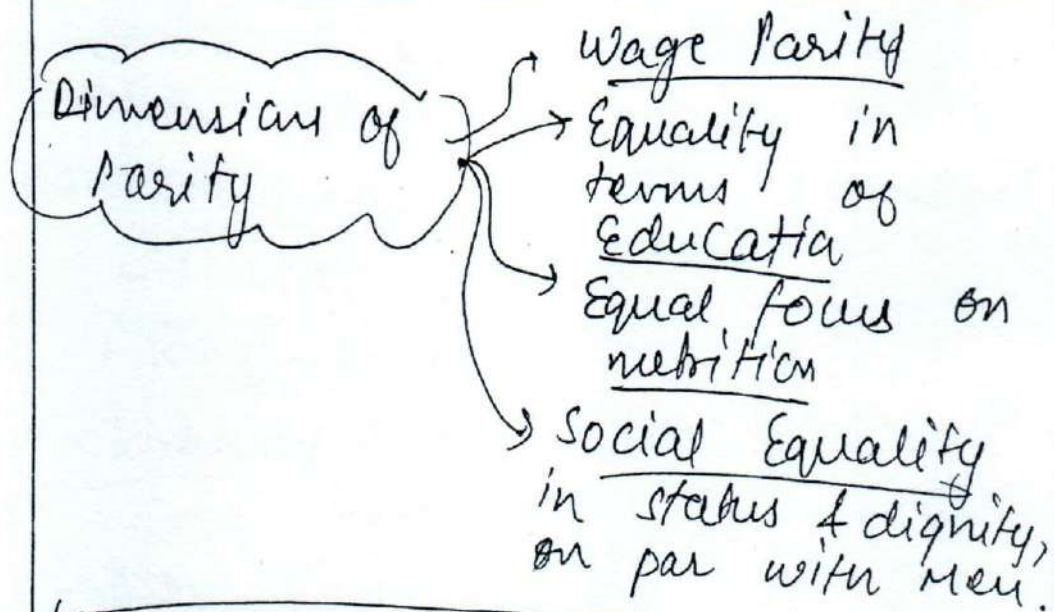 Dimensions of
Parity
Wage Parity
Equality in
terms of
Educatia
Equal focus on
nutrition
Social Equality
in status & dignity,
on par with Men.